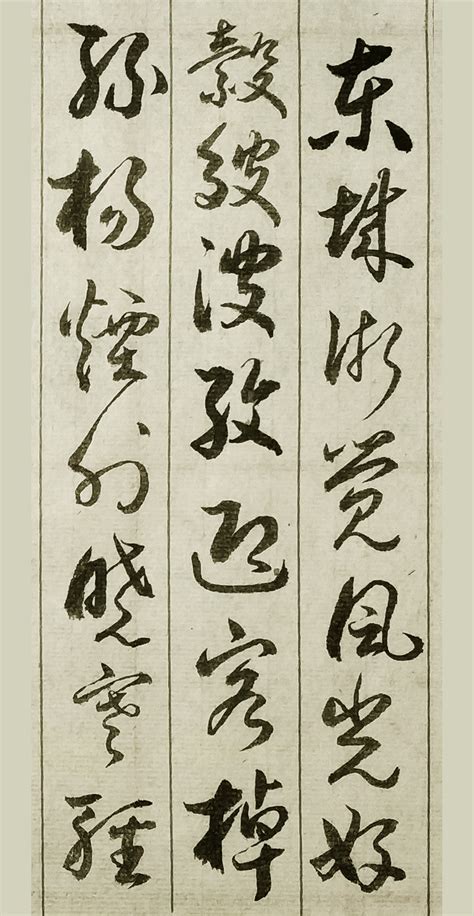 东城渐觉风光好
縠皱波纹迎客棹
绿杨烟外晓寒轻